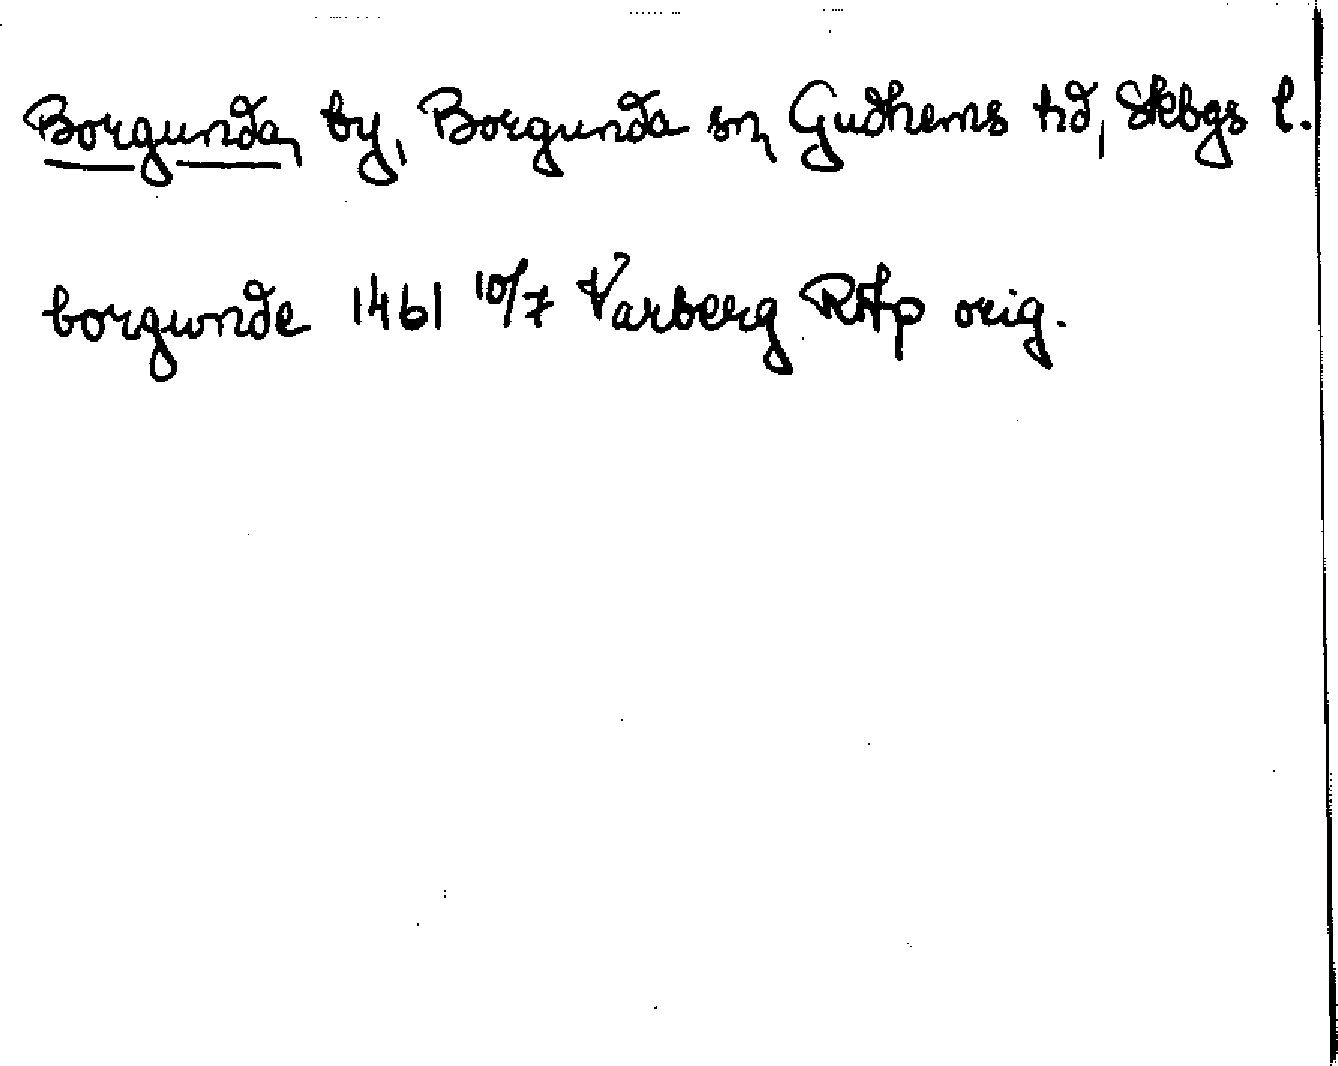 Borgunda, by, Borgunda sn, Gudhems hd, Skbgs l.
borgunde 1461 10/7 Varberg RAp orig.